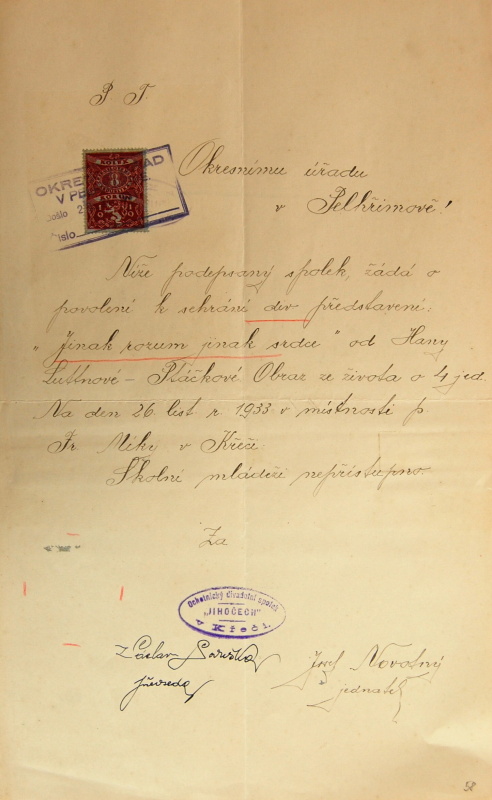 P. T.
KOLEK
8
KORUN
OKRES AD
V PE
Došlo 2
Číslo
Okresnímu úřadu
v Pelhřimově!
Níže podepsaný spolek, žádá o
povolení k sehrání div představení:
"Jinak rozum jinak srdce" od Hany
Ptáčkové Obraz ze života o 4 jed.
Na den 26. list. r. 1933 v místnosti p.
Fr. v Křeči.
Školní mládeži nepřístupno.
Za
Ochotnický divadelní spolek
"JIHOČECH"
v Křeči.
Josef Novotný
předseda
jednatel
58